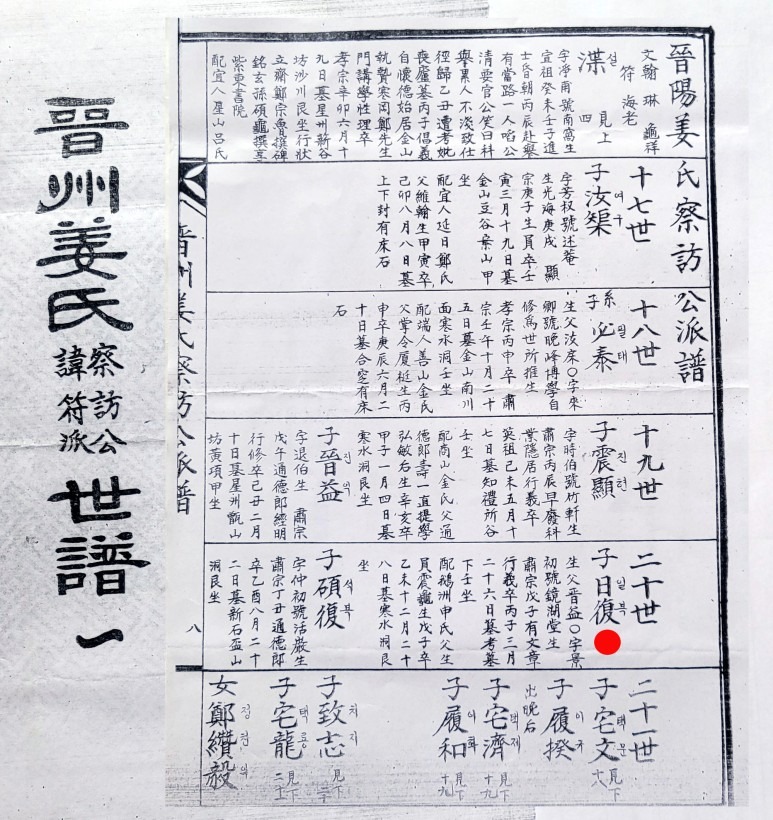 晉陽姜氏察訪公派譜
文翰 琳 龜祥
符 海老
渫 설 見上
四
字淨甫 號南窩生
宣祖癸未壬子進
士昏朝丙辰赴擧
有當路一人啗公
清要官公笑曰科
擧累人不淺致仕
徑歸乙丑遭考妣
喪廬墓丙子倡義
自懷德始居金山
執贄寒岡鄭先生
門講學性理卒
孝宗辛卯六月十
九日墓星州薪谷
坊沙川艮坐行狀
立齋鄭宗魯撰碑
銘玄孫碩龜撰享
紫東書院
配宜人星山呂氏
十七世
子汝榘 여구
字芳叔號述菴
生光海庚戌 顯
宗庚子生員卒壬
寅三月十九日墓
金山豆谷桼山甲
坐
配宜人延日鄭氏
父維翰生甲寅卒
己卯八月八日墓
上下封有床石
十八世
系子必泰 필태
生父汝㡽○字來
卿號晚峰博學自
修爲世所推生
孝宗丙申卒 肅
宗壬午十月二十
五日墓金山南川
面寒水洞壬坐
配端人善山金氏
父掌令厦梃生丙
申卒庚辰六月二
十日墓合窆有床
石
十九世
子震顯 진현
字時伯號竹軒生
肅宗丙辰早廢科
業隱居行義卒
英祖己未五月十
七日墓知禮所谷
壬坐
配商山金氏父通
德郎壽一直提學
弘敏右生辛亥卒
甲子一月四日墓
寒水洞艮坐
子晉益 진익
字退伯生 肅宗
戊午通德郎經明
行修卒己丑二月
十日墓星州甑山
坊黃項甲坐
二十世
子日復 일복
生父晉益○字景
初號鏡湖堂生
肅宗戊子有文章
行義卒丙子三月
二十六日墓考墓
下壬坐
配鵝洲申氏父生
員震龜生戊子卒
乙未十二月二十
八日墓寒水洞艮
坐
子碩復 석복
字仲初號活嚴生
肅宗丁丑通德郎
卒乙酉八月二十
二日墓新石盃山
洞艮坐
二十一世
子宅文 택문 見下十八
子履揆 이규
出晩后
子宅濟 택제 見下十九
子履和 이화 見下十九
子致志 치지 見下二十
子宅龍 택룡 見下二十一
女鄭纘毅 정찬의
晉州姜氏察訪公派譜
八
晉州姜氏 察訪公諱符派 世譜 一